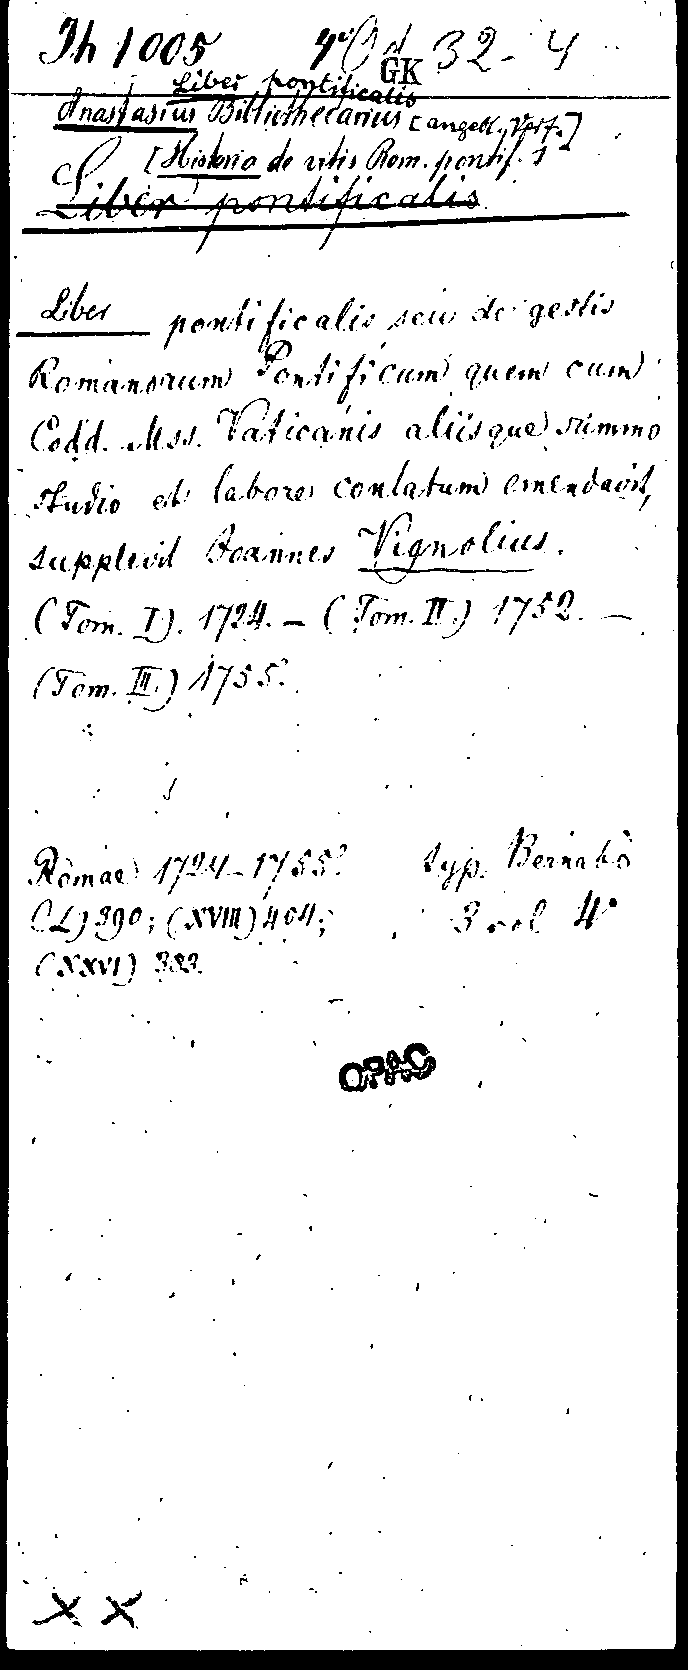 Th 1005 4° Od 32-4
GK
Liber pontificalis
Anastasius Bibliothecarius [angebl. Verf.]
[Historia de vitis Rom. pontif.]
Liber pontificalis
Liber pontificalis seu de gestis
Romanorum Pontificum quem cum
Codd. Mss. Vaticanis aliisque summo
studio et labore conlatum emendavit,
supplevit Joannes Vignolius.
(Tom. I). 1724. – (Tom. II.) 1752. –
(Tom. III.) 1755.
Romae 1724-1755. typ. Bernabò
(L) 390; (XVIII) 404; 3 vol 4°
(XXVI) 383.
OPAC
X X